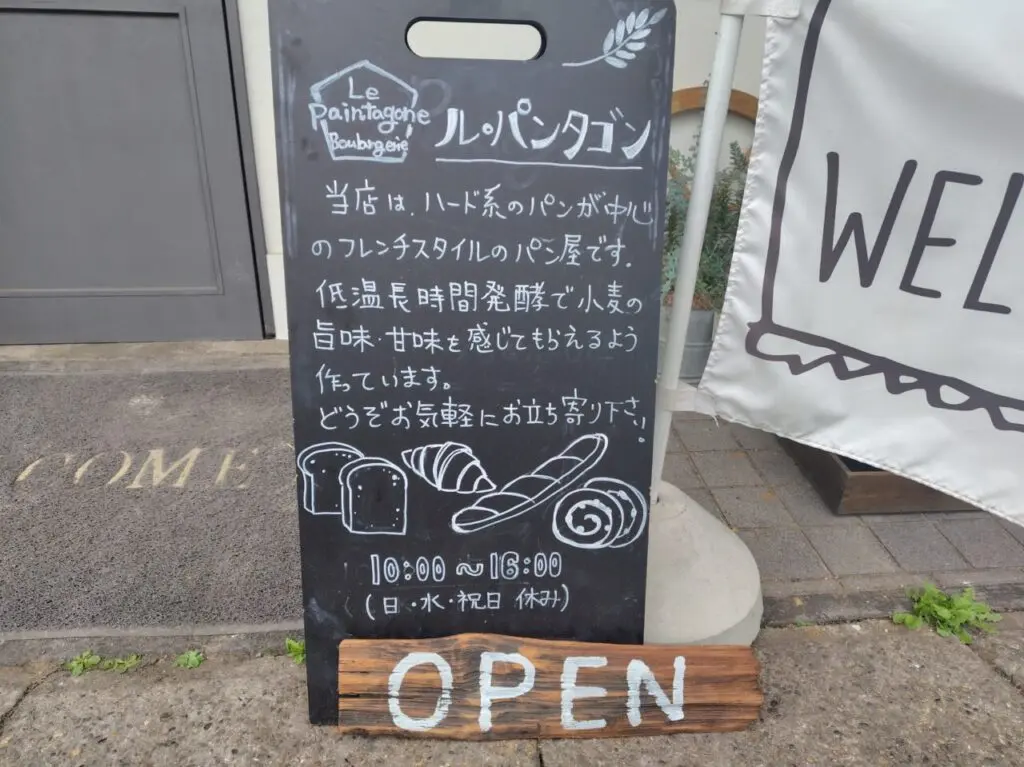 Le
Paintagone
Boulangerie
ル・パンタゴン
当店は、ハード系のパンが中心
のフレンチスタイルのパン屋です。
低温長時間発酵で小麦の
旨味・甘味を感じてもらえるよう
作っています。
どうぞお気軽にお立ち寄り下さい。
10:00〜16:00
(日・水・祝日 休み)
OPEN
COME
WEL